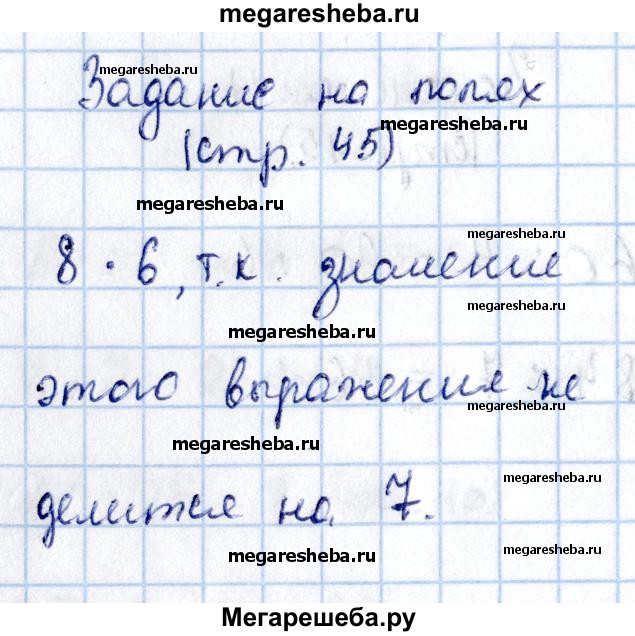 megaresheba.ru
megaresheba.ru
Задание на полях
megaresheba.ru
(стр. 45)
megaresheba.ru
megaresheba.ru
8 · 6, т.к. значение
megaresheba.ru
megaresheba.ru
этого выражения не
megaresheba.ru
megaresheba.ru
делится на 7.
megaresheba.ru
megaresheba.ru
Мегарешеба.ру